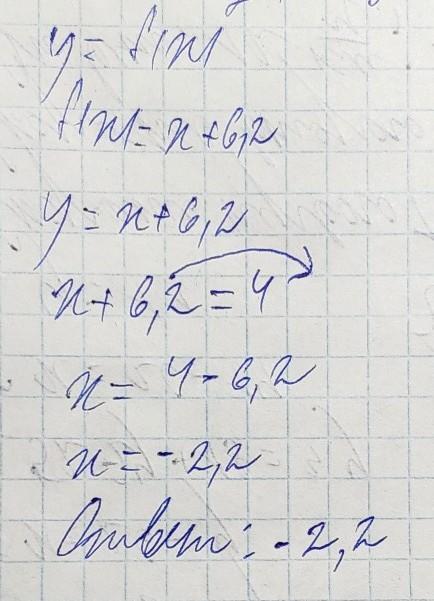 y = f(x)
f(x) = x + 6,2
y = x + 6,2
x + 6,2 = 4
x = 4 - 6,2
x = -2,2
Ответ: -2,2